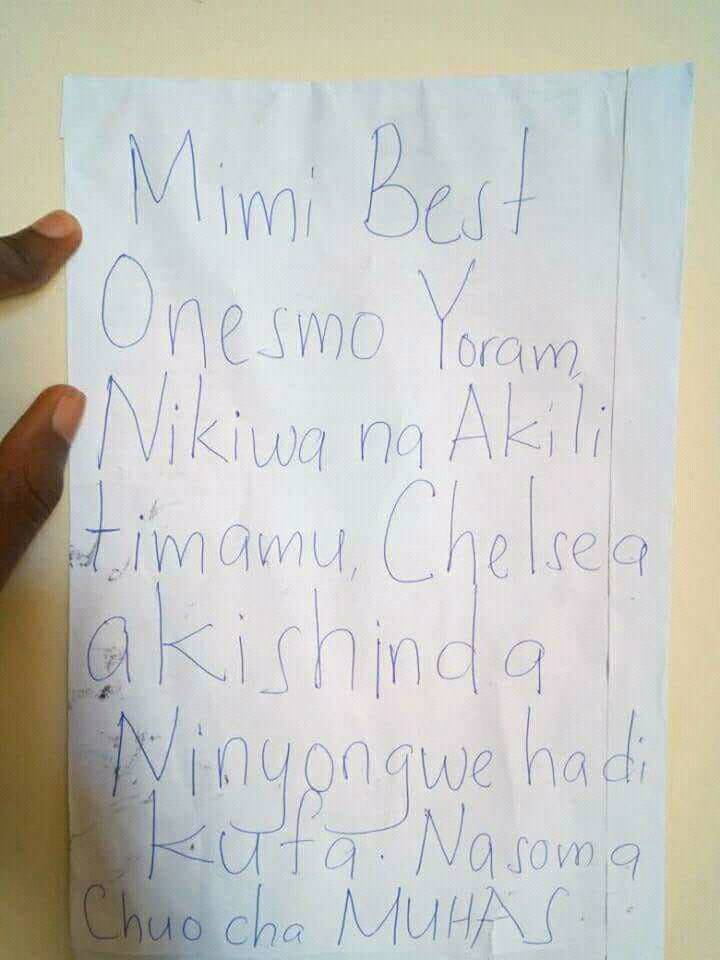 Mimi Best
Onesmo Yoram,
Nikiwa na Akili
timamu, Chelsea
akishinda
Ninyongwe hadi
kufa. Nasoma
Chuo cha MUHAS